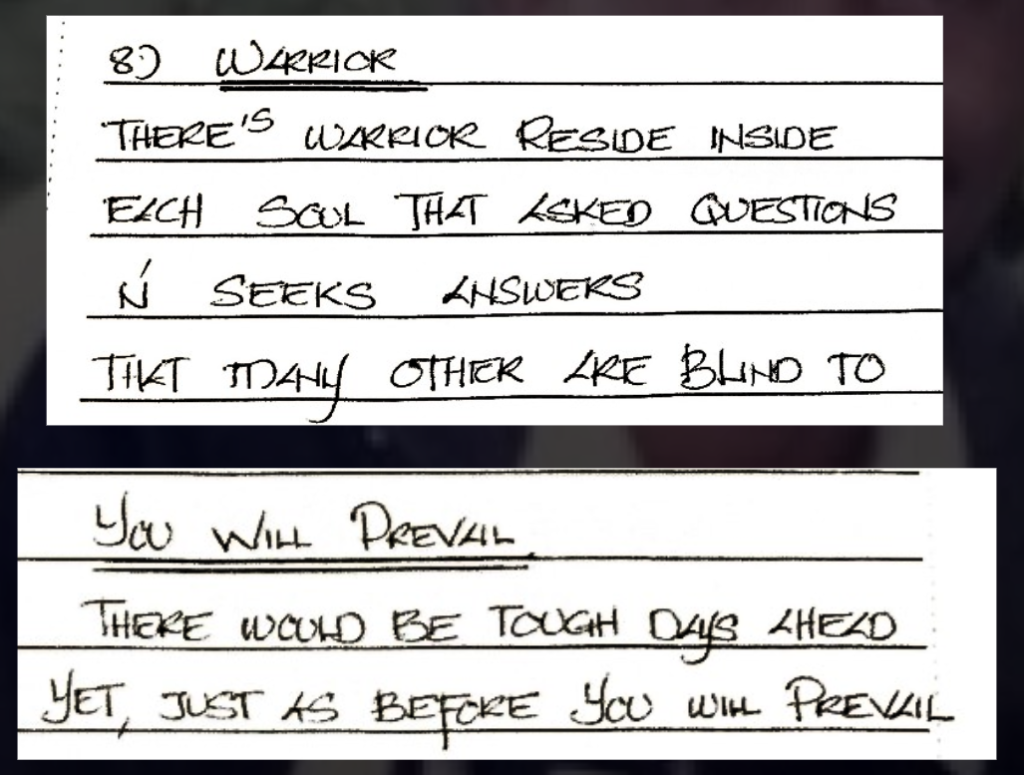 8.) WARRIOR
THERE'S WARRIOR RESIDE INSIDE
EACH SOUL THAT ASKED QUESTIONS
N' SEEKS ANSWERS
THAT MANY OTHER ARE BLIND TO
YOU WILL PREVAIL
THERE WOULD BE TOUGH DAYS AHEAD
YET, JUST AS BEFORE YOU WILL PREVAIL